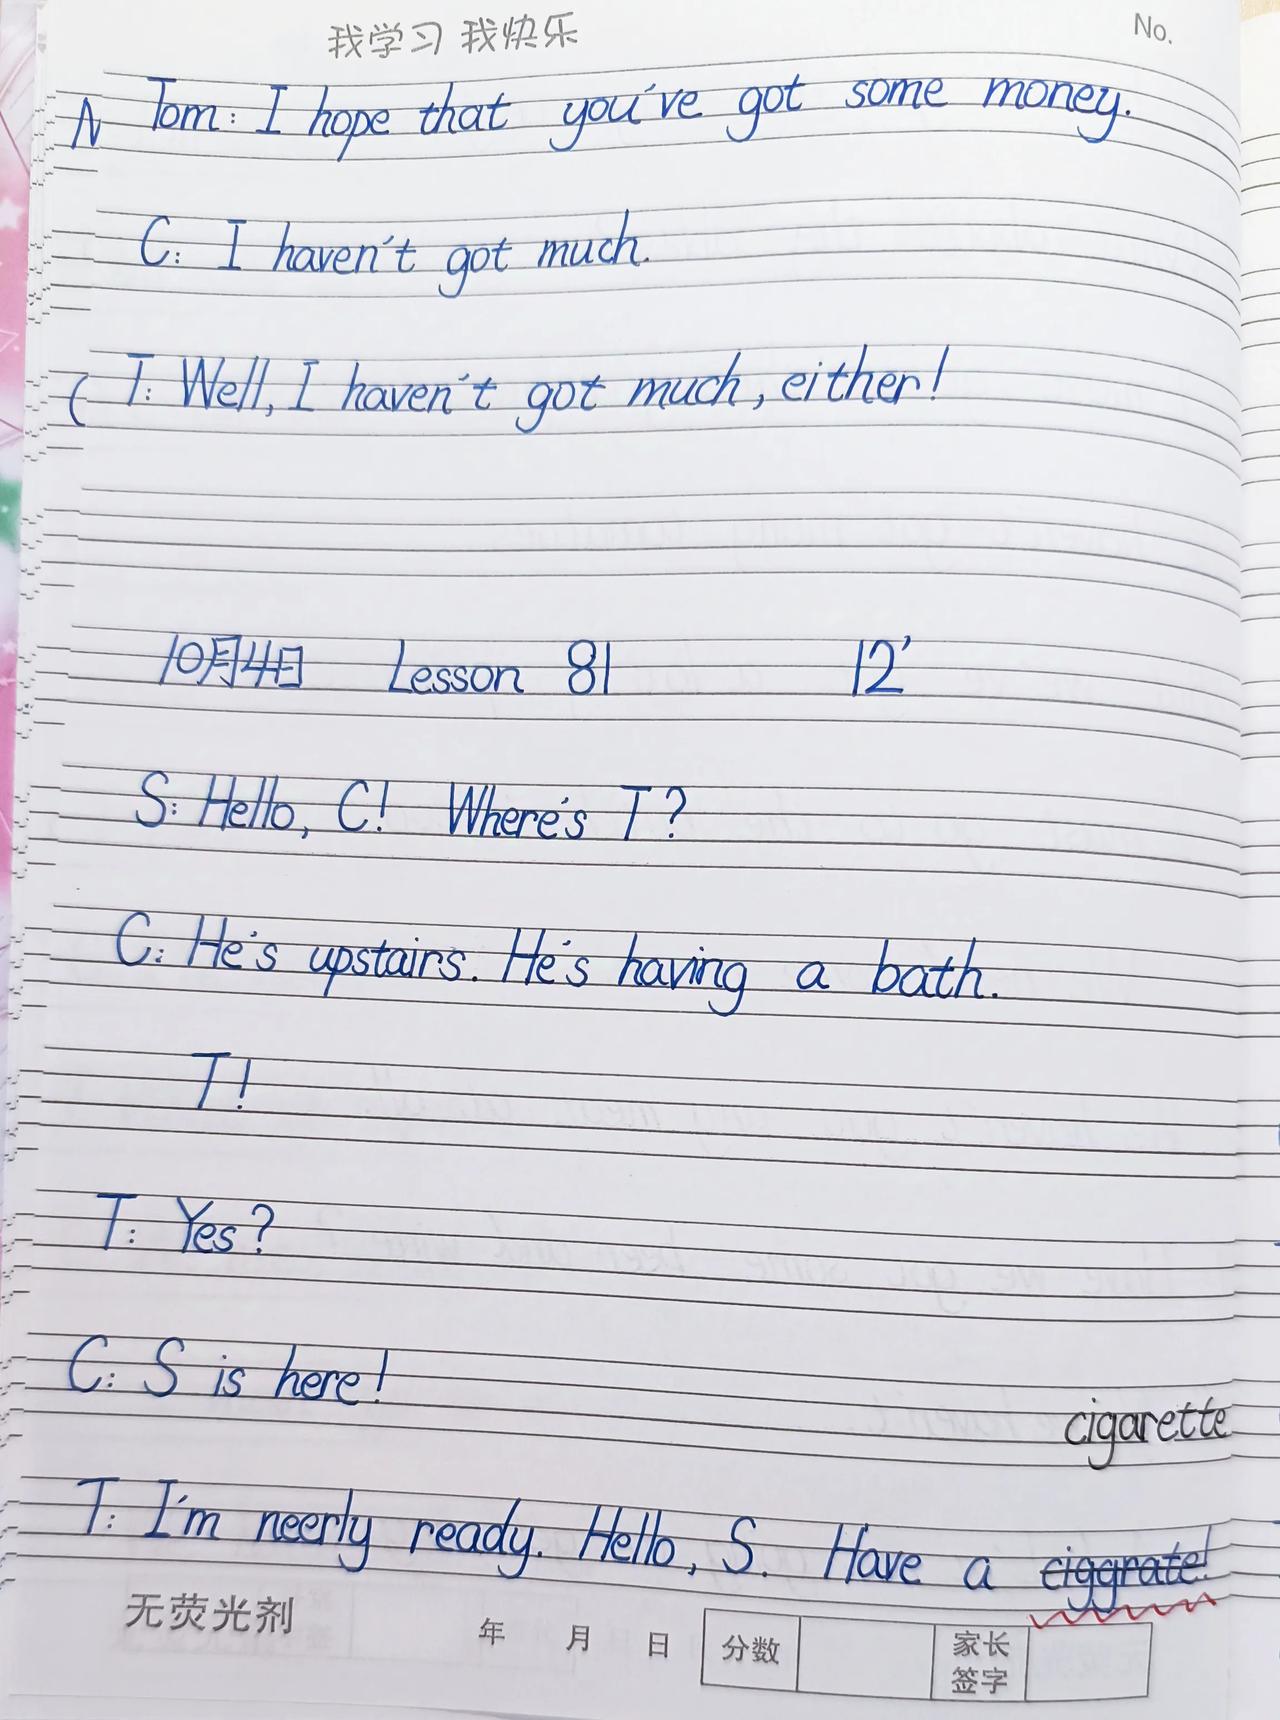 我学习 我快乐
No.
Tom: I hope that you've got some money.
C: I haven't got much.
T: Well, I haven't got much, either!
10月4日 Lesson 81 12'
S: Hello, C! Where's T?
C: He's upstairs. He's having a bath.
T!
T: Yes?
C: S is here!
cigarette
T: I'm neerly ready. Hello, S. Have a ciggrate!
无荧光剂
年 月 日
分数
家长
签字